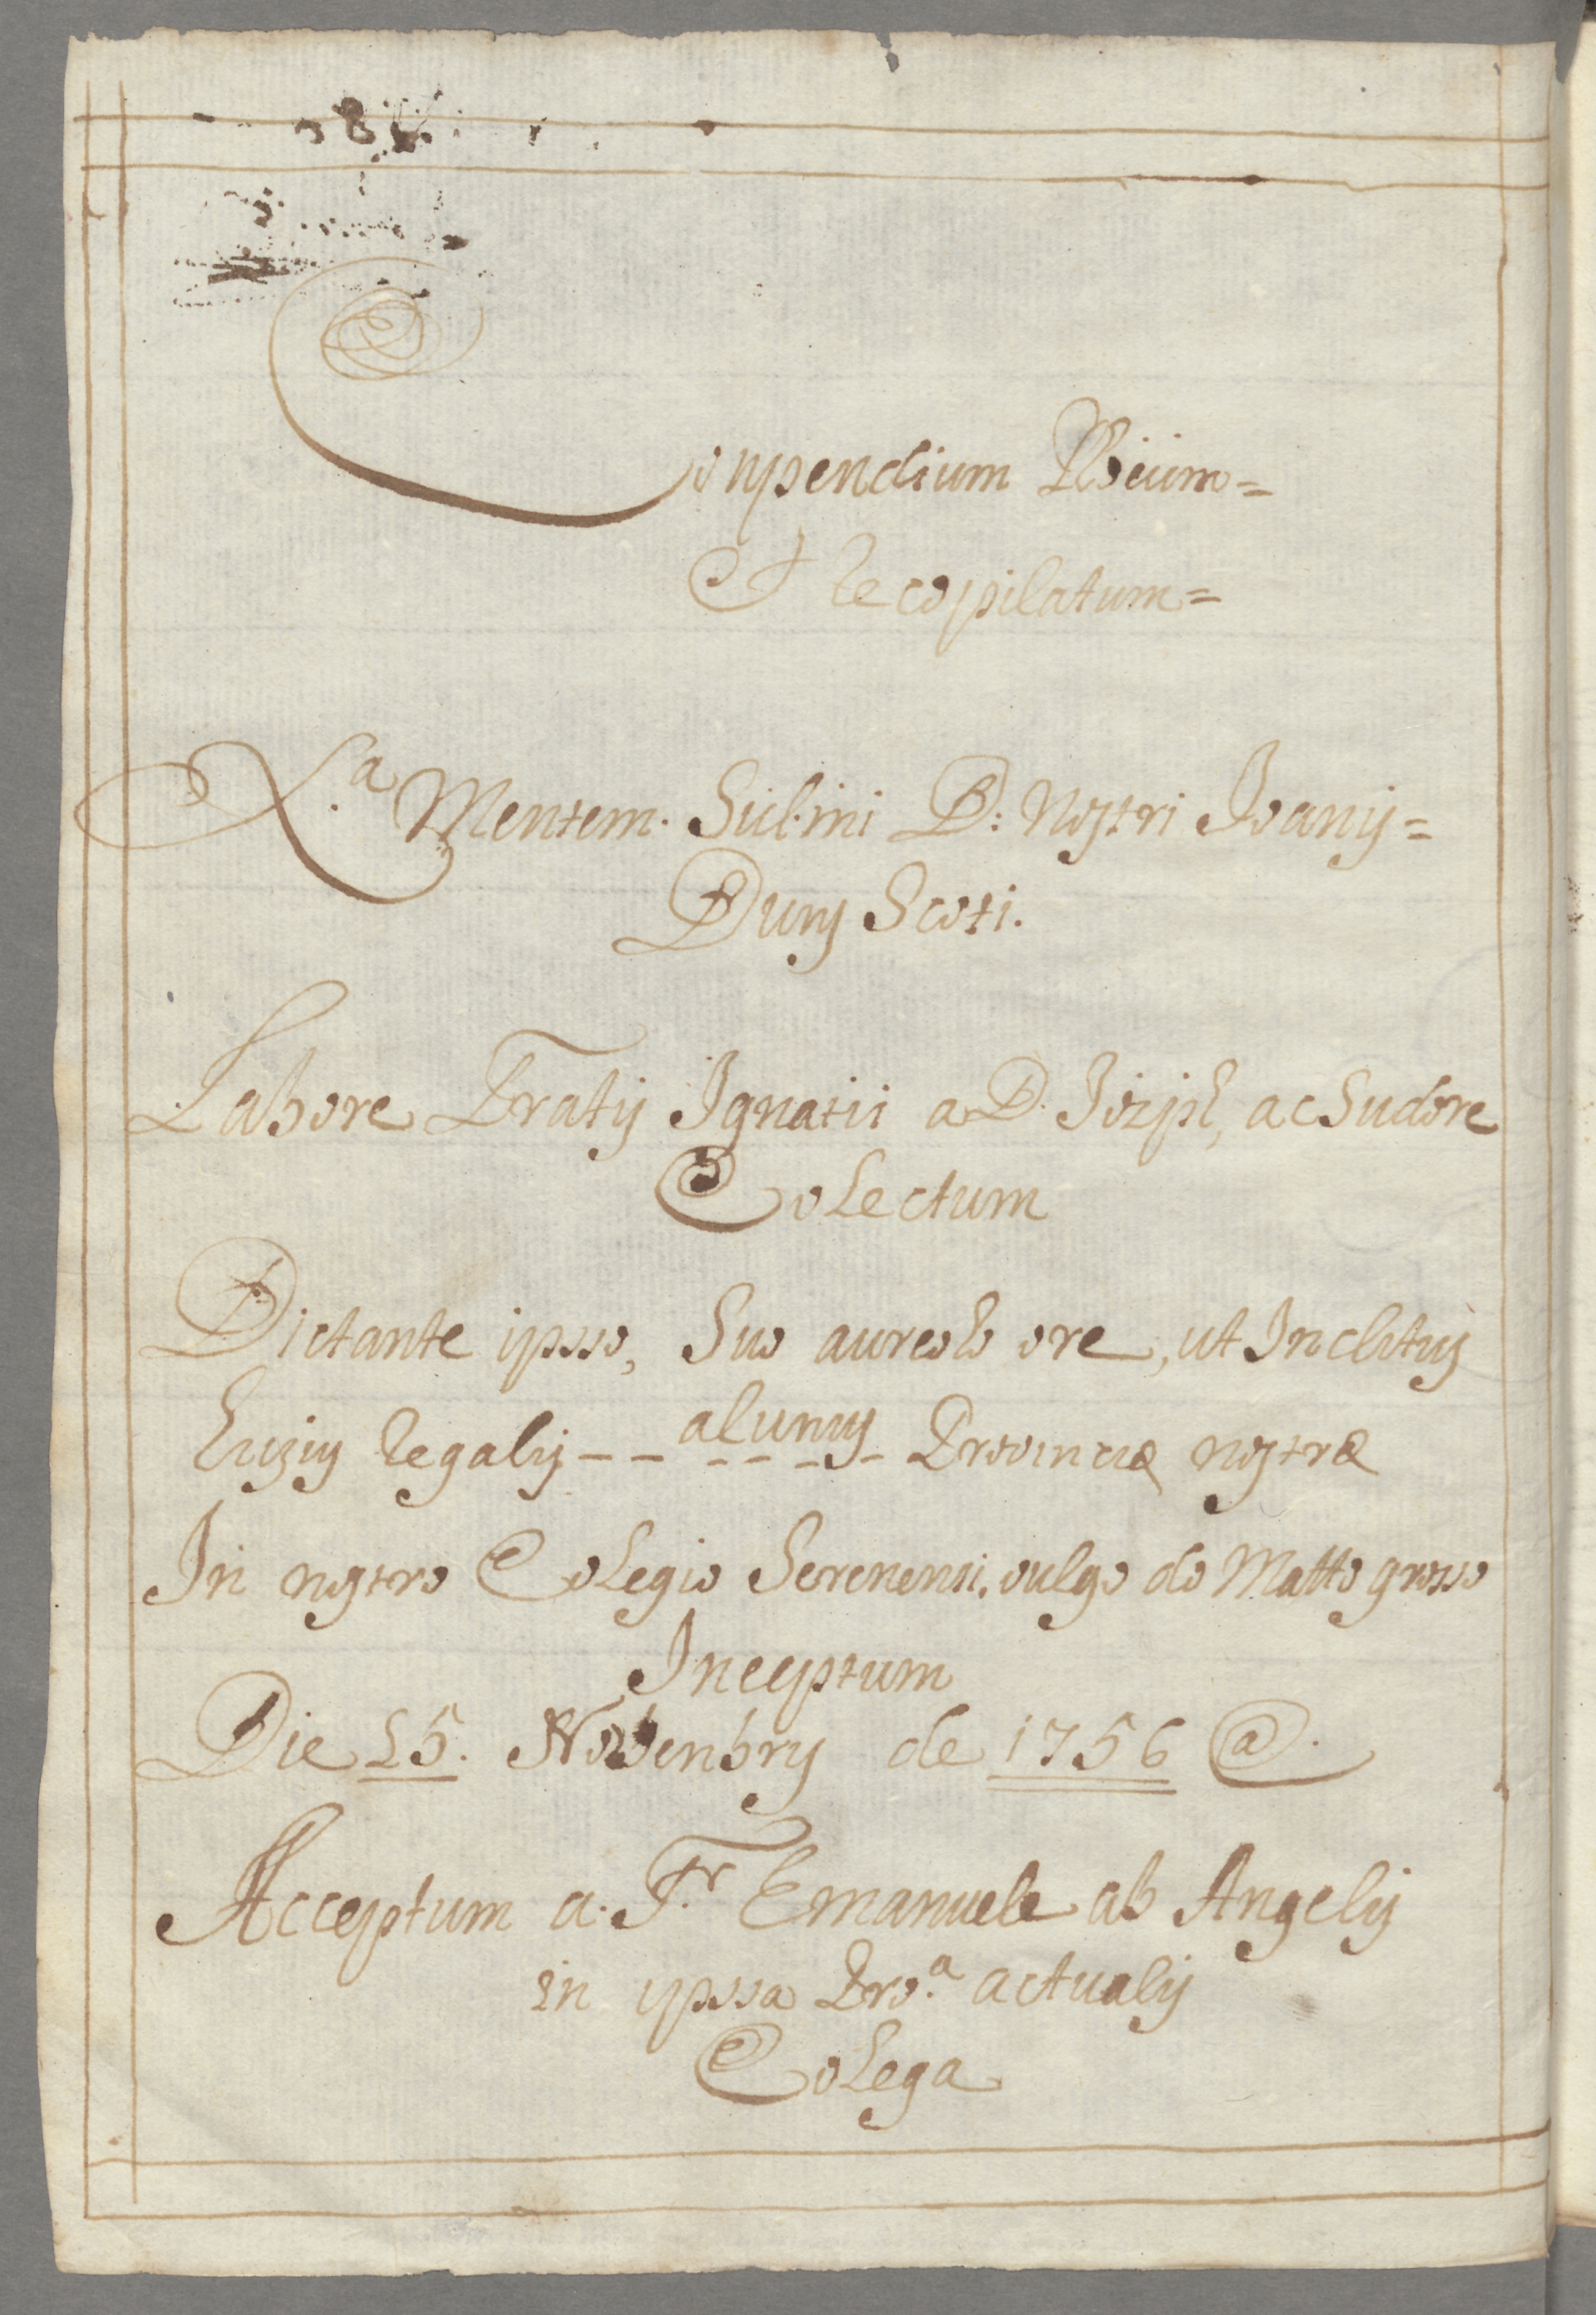 Conpendium
Et Recopilatum=
X.a Mentem. Subimi D: Nostri Joanis=
Duns Scoti.
Labore Fratis Ignatii a D. Jozph, ac Sudore
Colectum
Dictante ipsso, Suo aureolo ore, ut Inclitus
regalis - - alunus - - - - Provinciæ nostræ
In nostro Colegio Serenensi. vulgo do Matto grosso
Inceptum
Die 15. Novenbris de 1756 @.
Acceptum a. Fr. Emanuele ab Angelis
in ipssa Pro.a actualis
Colega